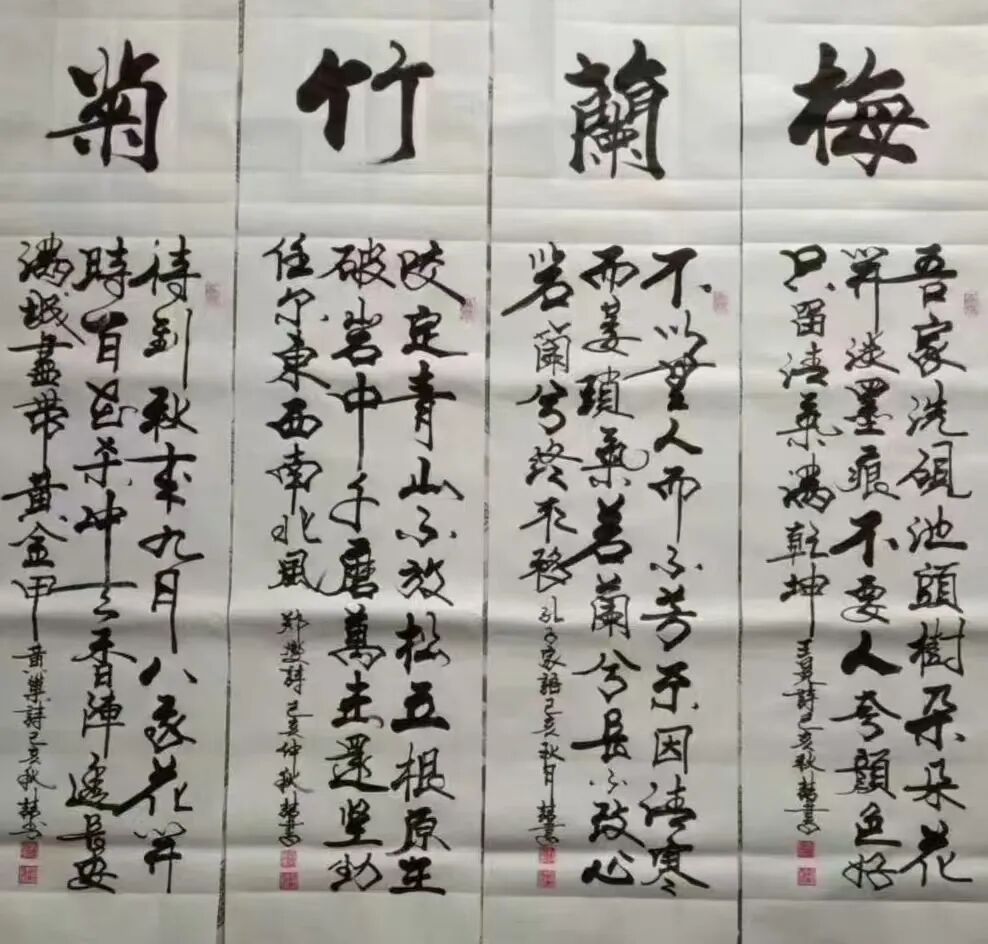 梅
吾家洗硯池頭樹朵朵花
开淡墨痕不要人夸顏色好
只留清氣滿乾坤
王冕詩己亥秋
蘭
不以無人而不芳不因清寒
而萎瑣氣若蘭兮長不改心
若蘭兮終不移
孔子家語己亥秋月
竹
咬定青山不放松立根原在
破岩中千磨萬击還坚劲
任尔東西南北風
郑燮詩己亥仲秋
菊
待到秋来九月八我花开
時百花杀冲天香陣透長安
滿城盡帶黃金甲
黃巢詩己亥秋